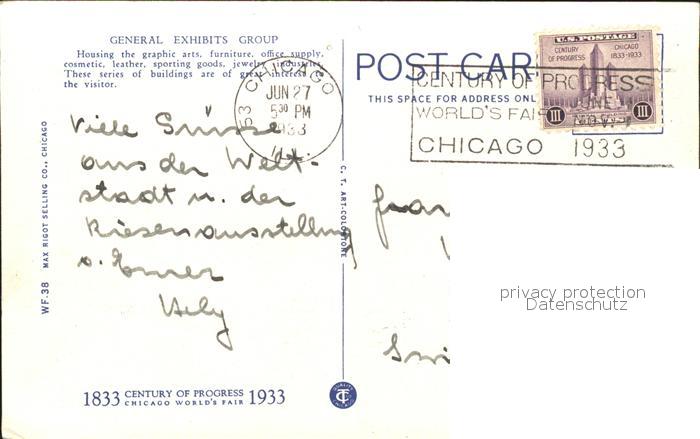 GENERAL EXHIBITS GROUP
Housing the graphic arts, furniture, office supply,
cosmetic, leather, sporting goods, jewelry industries.
These series of buildings are of great interest to
the visitor.
CHICAGO
JUN 27
5 30 PM
1933
ILL.
53
POST CAR
THIS SPACE FOR ADDRESS ONL
U.S. POSTAGE
CENTURY OF PROGRESS
CHICAGO 1833-1933
III III
CENTURY OF PROGRESS
WORLD'S FAIR JUNE 1
NOV. 1
CHICAGO 1933
Viele Grüsse
aus der Welt-
stadt u. der
Riesenausstellung
v. Eurer
Hely
Frau
WF.38 MAX RIGOT SELLING CO., CHICAGO
C. T. ART-COLORTONE
1833 CENTURY OF PROGRESS
CHICAGO WORLD'S FAIR 1933
privacy protection
Datenschutz